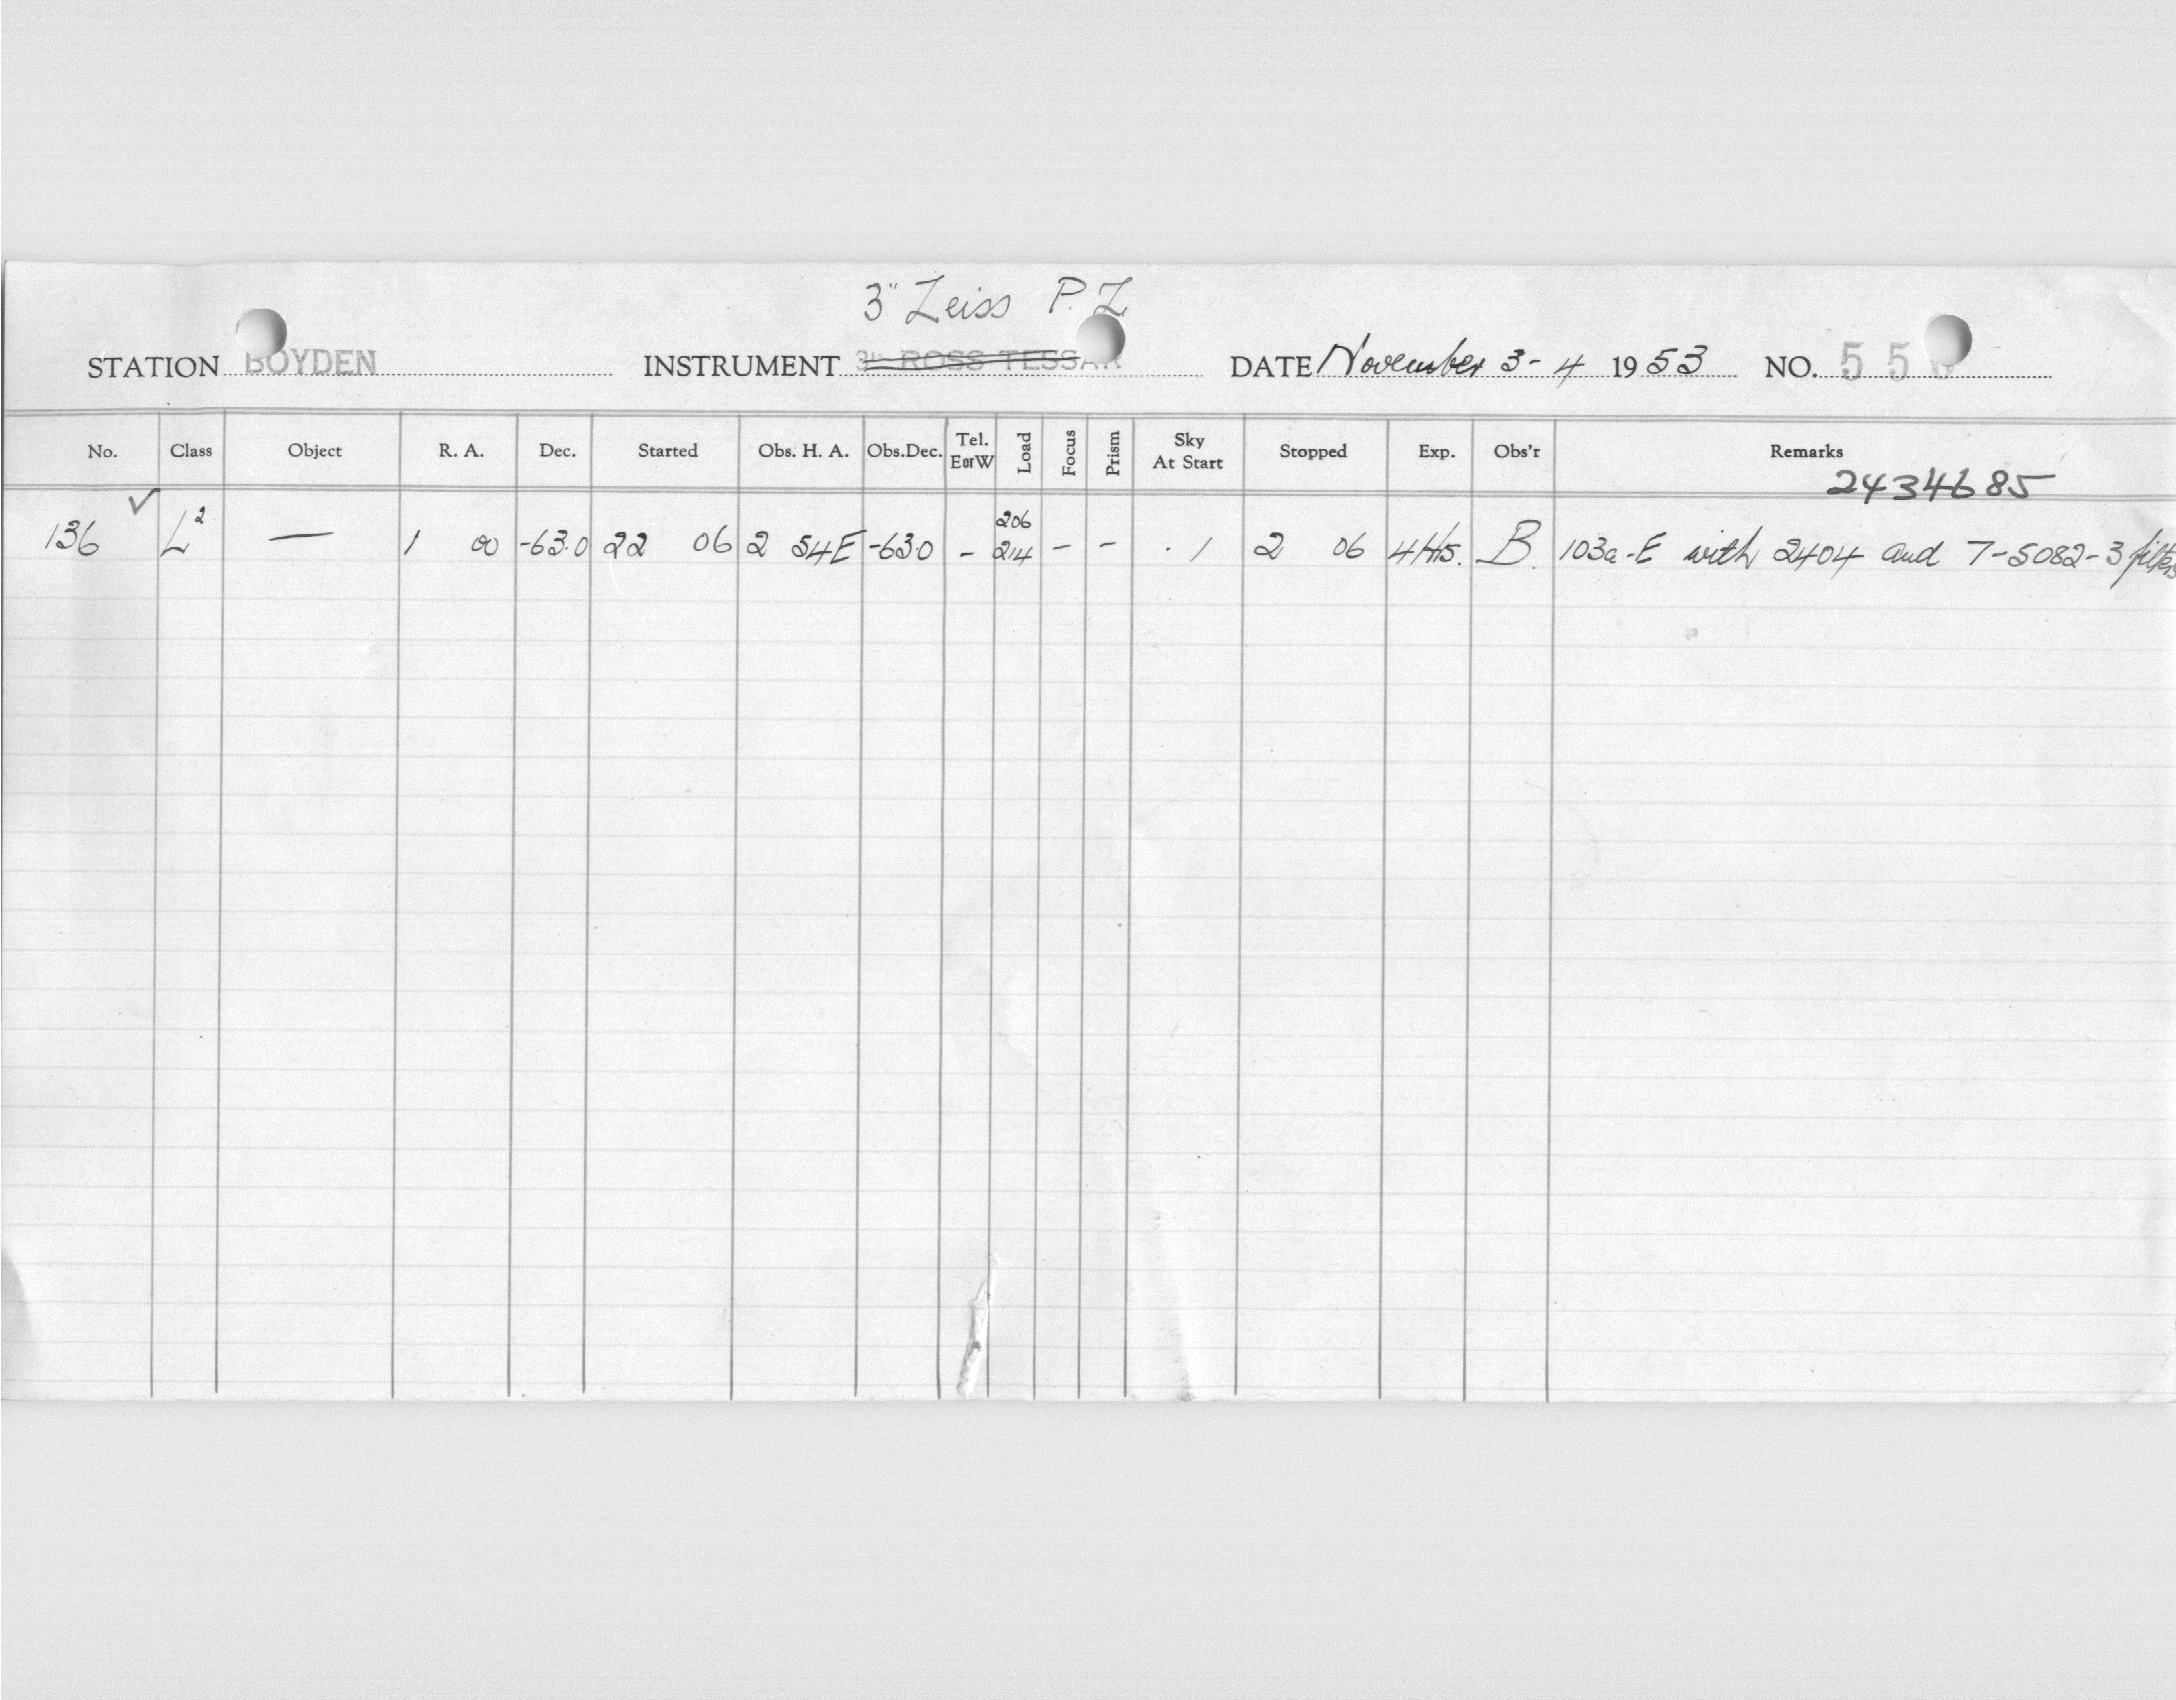 3" Zeiss P.Z
STATION BOYDEN INSTRUMENT 3" ROSS TESSAR DATE November 3-4 1953 NO. 55
No. Class Object R. A. Dec. Started Obs. H. A. Obs.Dec. Tel. E or W Load Focus Prism Sky At Start Stopped Exp. Obs'r Remarks
2434685
136 ✓ L² — 1 00 -63.0 22 06 2 54E -63.0 - 206 214 - - . 1 2 06 4Hrs. B. 103a-E with 2404 and 7-5082-3 filters